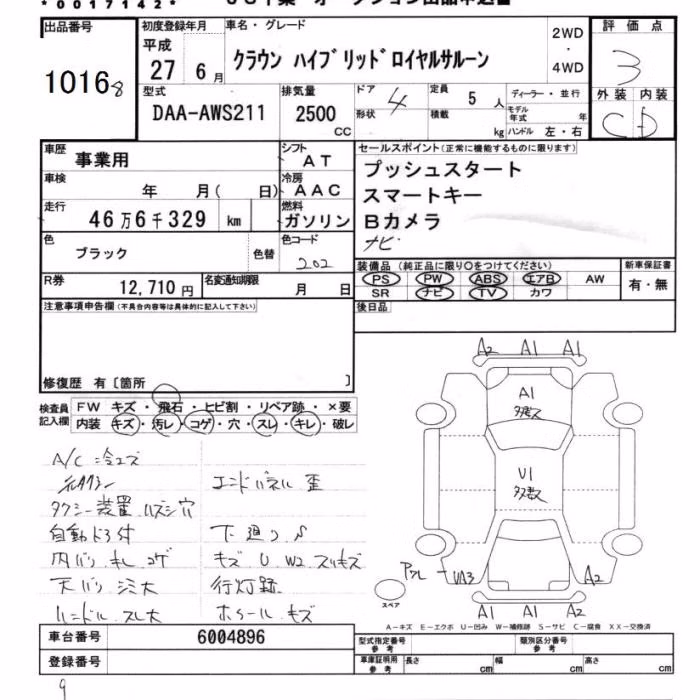 *0017142*
出品番号 初度登録年月 車名・グレード 評価点
10168 平成 27 6月 クラウン ハイブリッドロイヤルサルーン 2WD・4WD 3
型式 排気量 ドア 4 定員 5人 ディーラー・並行 外装 内装
DAA-AWS211 2500 CC 形状 積載 kg モデル年式 年 ハンドル 左・右 C D
車歴 事業用 シフト AT セールスポイント(正常に機能するものに限ります)
車検 年 月( 日) 冷房 AAC プッシュスタート
スマートキー
走行 46万6千329 km 燃料 ガソリン Bカメラ
色 ブラック 色替 色コード 202 ナビ
R券 12,710円 名変通知期限 月 日 装備品(純正品に限り○をつけてください) 新車保証書
PS PW ABS エアB AW 有・無
SR ナビ TV カワ
注意事項申告欄(不具合内容等は具体的に記入して下さい) 後日品
修復歴 有〔箇所 〕
検査員記入欄 FW キズ・飛石・ヒビ割・リペア跡・×要
内装 キズ・汚レ・コゲ・穴・スレ・キレ・破レ
A2 A1 A1
A1
多数
U1
多数
UA3 A2
A1 A1 A2
スペア
A/C
エンドパネル 歪
タクシー装置 ハズシ穴
自動ドア付 下廻り
内バリ キレ コゲ キズ U W2 スリキズ
天バリ シミ大 行灯跡
ハンドル スレ大 ホイール キズ
A-キズ E-エクボ U-凹み W-補修跡 S-サビ C-腐食 XX-交換済
車台番号 6004896 型式指定番号 参考 類別区分番号 参考
登録番号 車庫証明用 参考 長さ cm 幅 cm 高さ cm
9